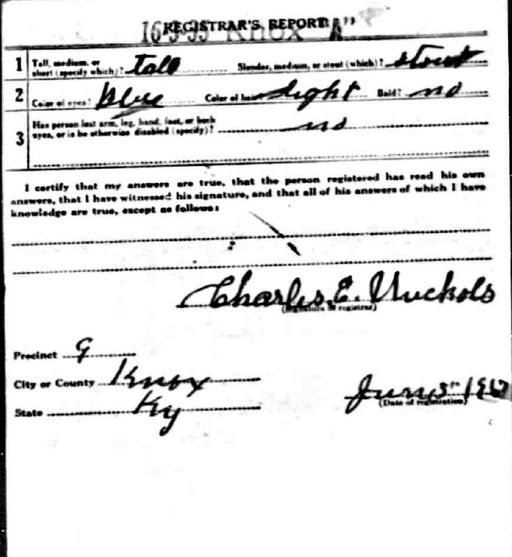 REGISTRAR'S REPORT
16-3-35 KNOX "A"
1 Tall, medium, or short (specify which)? Tall Slender, medium, or stout (which)? stout
2 Color of eyes? blue Color of hair? light Bald? no
3 Has person lost arm, leg, hand, foot, or both eyes, or is he otherwise disabled (specify)? no
I certify that my answers are true, that the person registered has read his own
answers, that I have witnessed his signature, and that all of his answers of which I have
knowledge are true, except as follows:
Charles E. Nuckols
(Signature of registrar)
Precinct 9
City or County Knox
State Ky
June 5" 1917
(Date of registration)